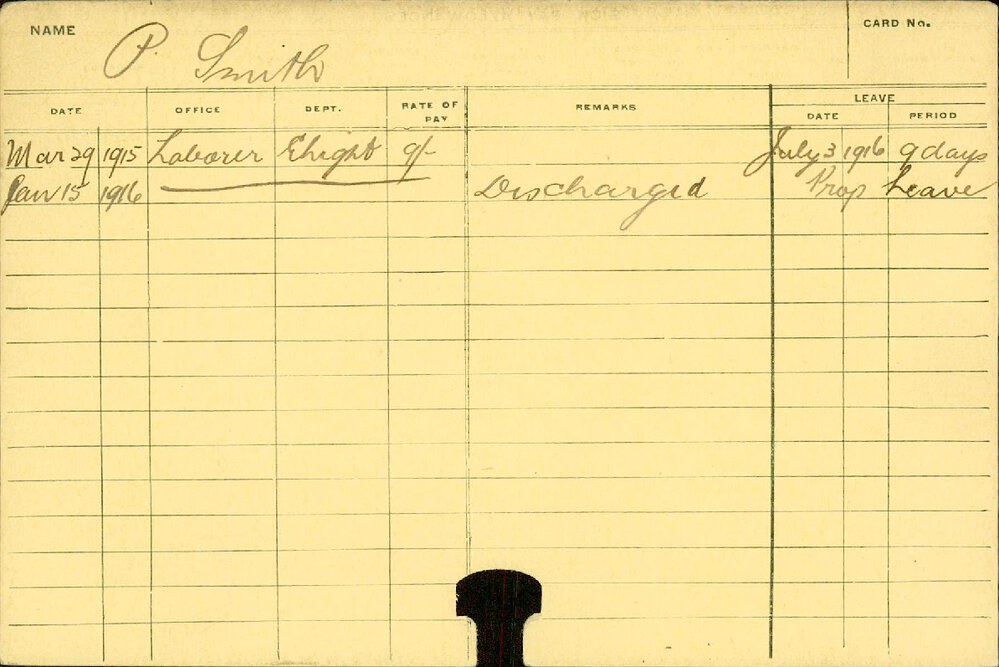 NAME P. Smith CARD No.
DATE OFFICE DEPT. RATE OF PAY REMARKS LEAVE DATE PERIOD
Mar 29 1915 Laborer Elright 9/- July 3 1916 9 days
Jan 15 1916 Discharged Prop Leave